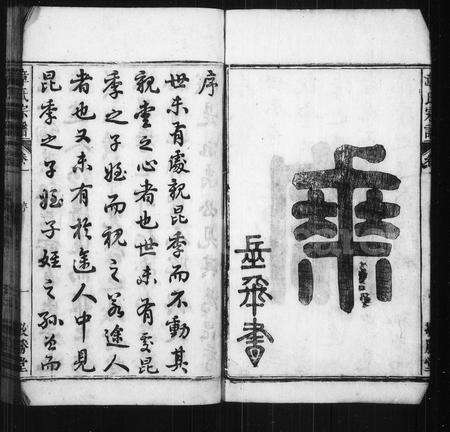 乘
岳飛書
序
世未有處親昆季而不動其
親愛之心者也世未有處昆
季之子姪而視之若途人
者也又未有於途人中見
昆季之子姪子姪之孫曾而
章氏宗譜
卷一
序
一